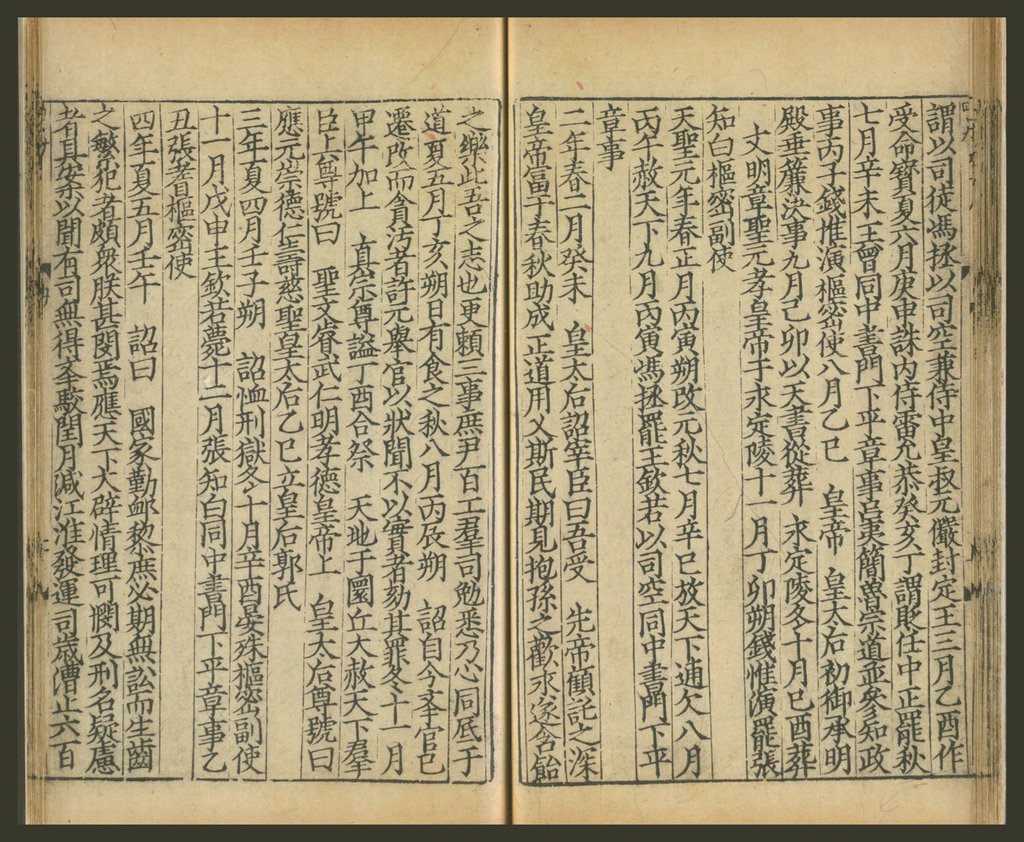 謂以司徒馮拯以司空兼侍中皇叔元儼封定王三月乙酉作
受命寳夏六月庚申誅内侍雷允恭癸亥丁謂貶任中正罷秋
七月辛未王曾同中書門下平章事吕夷簡魯宗道並參知政
事丙子錢惟演樞密使八月乙巳　皇帝　皇太后初御承明
殿垂簾決事九月己卯以天書從葬　永定陵冬十月己酉葬
文明章聖元孝皇帝于永定陵十一月丁卯朔錢惟演罷張
知白樞密副使
天聖元年春正月丙寅朔改元秋七月辛巳放天下逋欠八月
丙午赦天下九月丙寅馮拯罷王欽若以司空同中書門下平
章事
二年春二月癸未　皇太后詔宰臣曰吾受　先帝顧託之深
皇帝富于春秋助成正道用乂斯民期見抱孫之歡永遂含飴
之樂此吾之志也更頼三事庶尹百工羣司勉悉乃心同厎于
道夏五月丁亥朔日有食之秋八月丙辰朔　詔自今文官已
遷改而貪汚者許元舉官以狀聞不以實者劾其罪冬十一月
甲午加上　真宗尊謚丁酉合祭　天地于圜丘大赦天下羣
臣上尊號曰　聖文睿武仁明孝德皇帝上　皇太后尊號曰
應元崇德仁壽慈聖皇太后乙巳立皇后郭氏
三年夏四月壬子朔　詔恤刑獄冬十月辛酉晏殊樞密副使
十一月戊申王欽若薨十二月張知白同中書門下平章事乙
丑張耆樞密使
四年夏五月壬午　詔曰　國家勤衈黎庶必期無訟而生齒
之繁犯者頗衆朕甚閔焉應天下大辟情理可憫及刑名疑慮
者具案以聞有司無得舉駮閏月減江淮發運司歳漕止六百